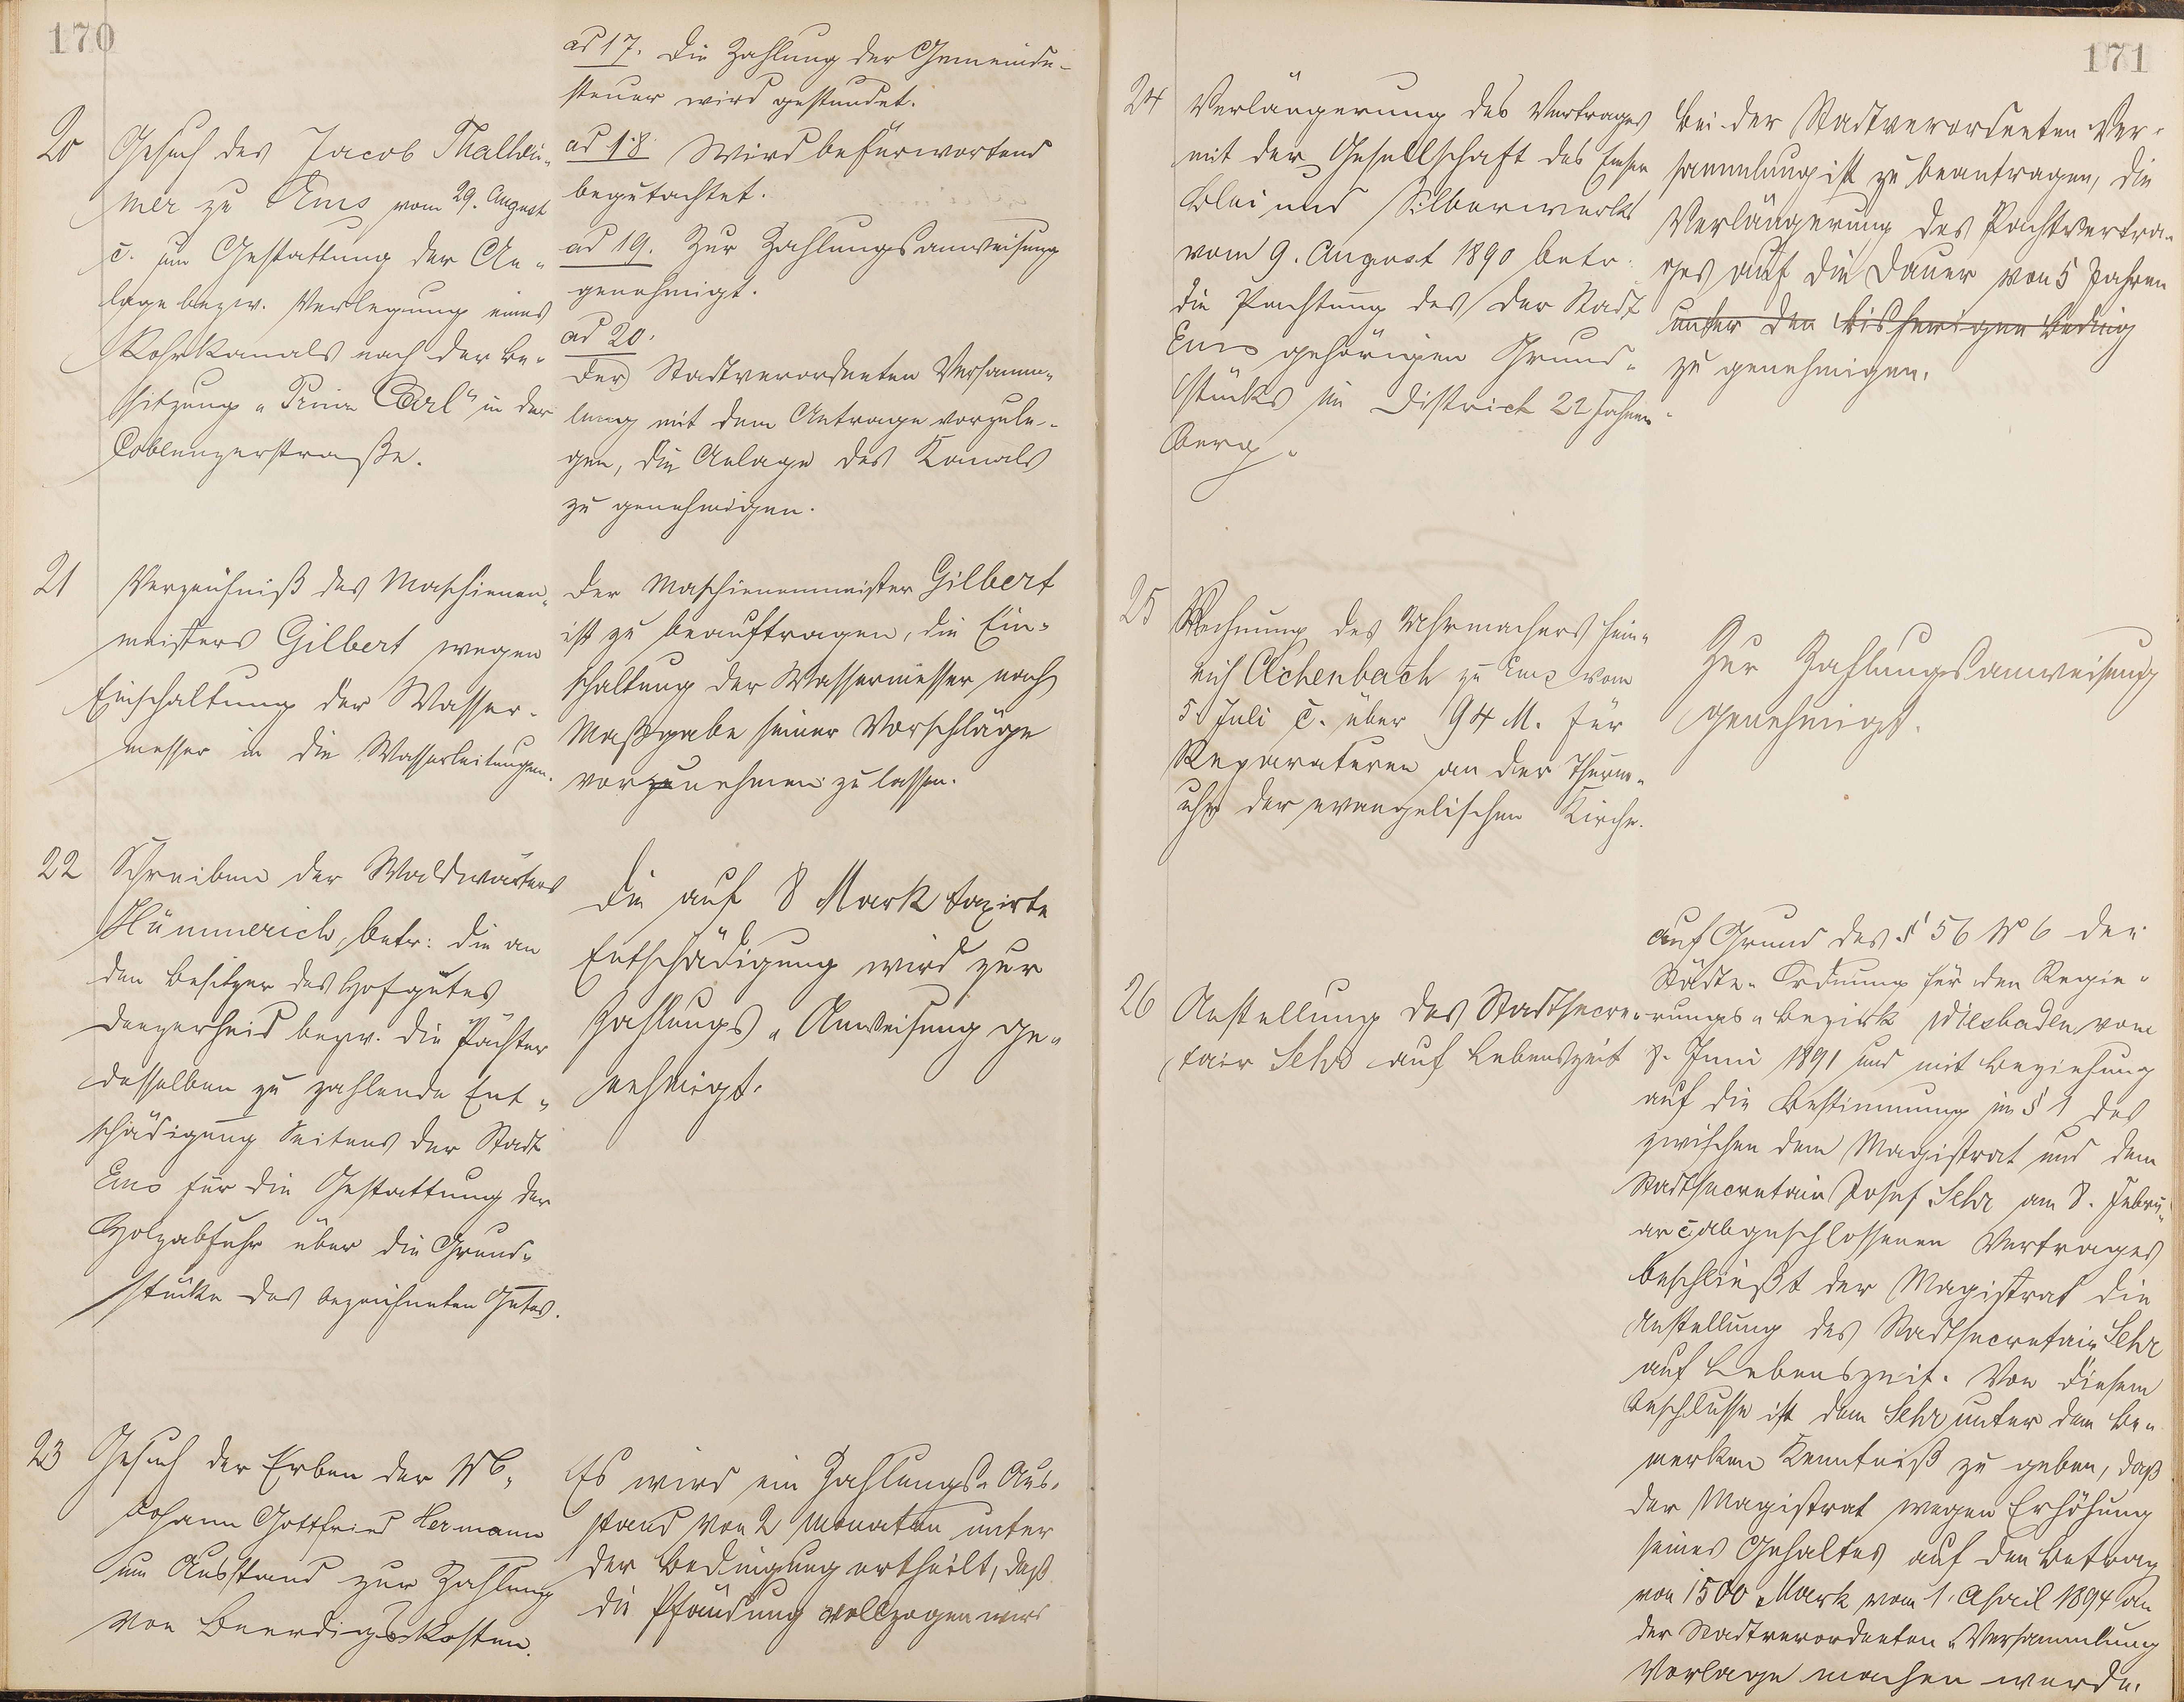 170
ad 17. Die Zahlung der Gemeinde-
steuer wird gestundet.
ad 18. Wird befürwortend
begutachtet.
ad 19. Zur Zahlungsanweisung
genehmigt.
ad 20.
Der Stadtverordneten Versamm-
lung mit dem Antrage vorzule-
gen, die Anlage des Kanals
zu genehmigen.
20 Gesuch des Jacob Thalhei-
mer zu Ems vom 29. August
c. um Gestattung der An-
lage bezw. Verlegung eines
Rohrkanals nach der Be-
sitzung "Prinz Carl" in der
Coblenzerstraße.
21 Verzeichniß des Maschienen-
meisters Gilbert wegen
Einschaltung der Wasser-
messer in die Wasserleitungen.
Der Maschienenmeister Gilbert
ist zu beauftragen, die Ein-
schaltung der Wassermesser nach
Maßgabe seiner Vorschläge
vorzunehmen zu lassen.
22 Schreiben der Waldwärters
Hümmerich, betr: die an
den Besitzer des Hofgutes
Denzerheid bezw. die Pächter
desselben zu zahlende Ent-
schädigung Seitens der Stadt
Ems für die Gestattung der
Holzabfuhr über die Grund-
stücke des bezeichneten Gutes.
Die auf 8 Mark taxirte
Entschädigung wird zur
Zahlungs-Anweisung ge-
nehmigt.
23 Gesuch der Erben der Wb.
Johann Gottfried Hermann
um Ausstand zur Zahlung
von Beerdigskosten.
Es wird ein Zahlungs-Aus-
stand von 2 Monaten unter
der Bedingung ertheilt, daß
die Pfändung vollzogen wird
171
24 Verlängerung des Vertrages
mit der Gesellschaft des Emser
Blei und Silberwerks
vom 9. August 1890 betr.
die Pachtung des der Stadt
Ems gehörigen Grund-
stücks im District 22 Fahnen-
berg.
Bei der Stadtverordneten Ver-
sammlung ist zu beantragen, die
Verlängerung des Pachtvertra-
ges auf die Dauer von 5 Jahren
unter den bisherigen Beding
zu genehmigen.
25 Rechnung des Uhrmachers Hein-
rich Achenbach zu Ems vom
5. Juli c. über 94 M. für
Reparaturen an der Thurm-
uhr der evangelischen Kirche.
Zur Zahlungsanweisung
genehmigt.
26 Anstellung des Stadtsecre-
tair Sehr auf Lebenszeit
Auf Grund des § 56 № 6 der
Städte-Ordnung für den Regie-
rungs-Bezirk Wiesbaden vom
8. Juni 1891 und mit Beziehung
auf die Bestimmung im § 1 des
zwischen dem Magistrat und dem
Stadtsecretair Josef Sehr am 8. Febru-
ar c. abgeschlossenen Vertrages
beschließt der Magistrat die
Anstellung des Stadtsecretair Sehr
auf Lebenszeit. Von diesem
Beschlusse ist dem Sehr unter dem Be-
merken Kenntniß zu geben, daß
der Magistrat wegen Erhöhung
seines Gehaltes auf den Betrag
von 1500 Mark vom 1. April 1894 an
der Stadtverordneten-Versammlung
Vorlage machen werde.